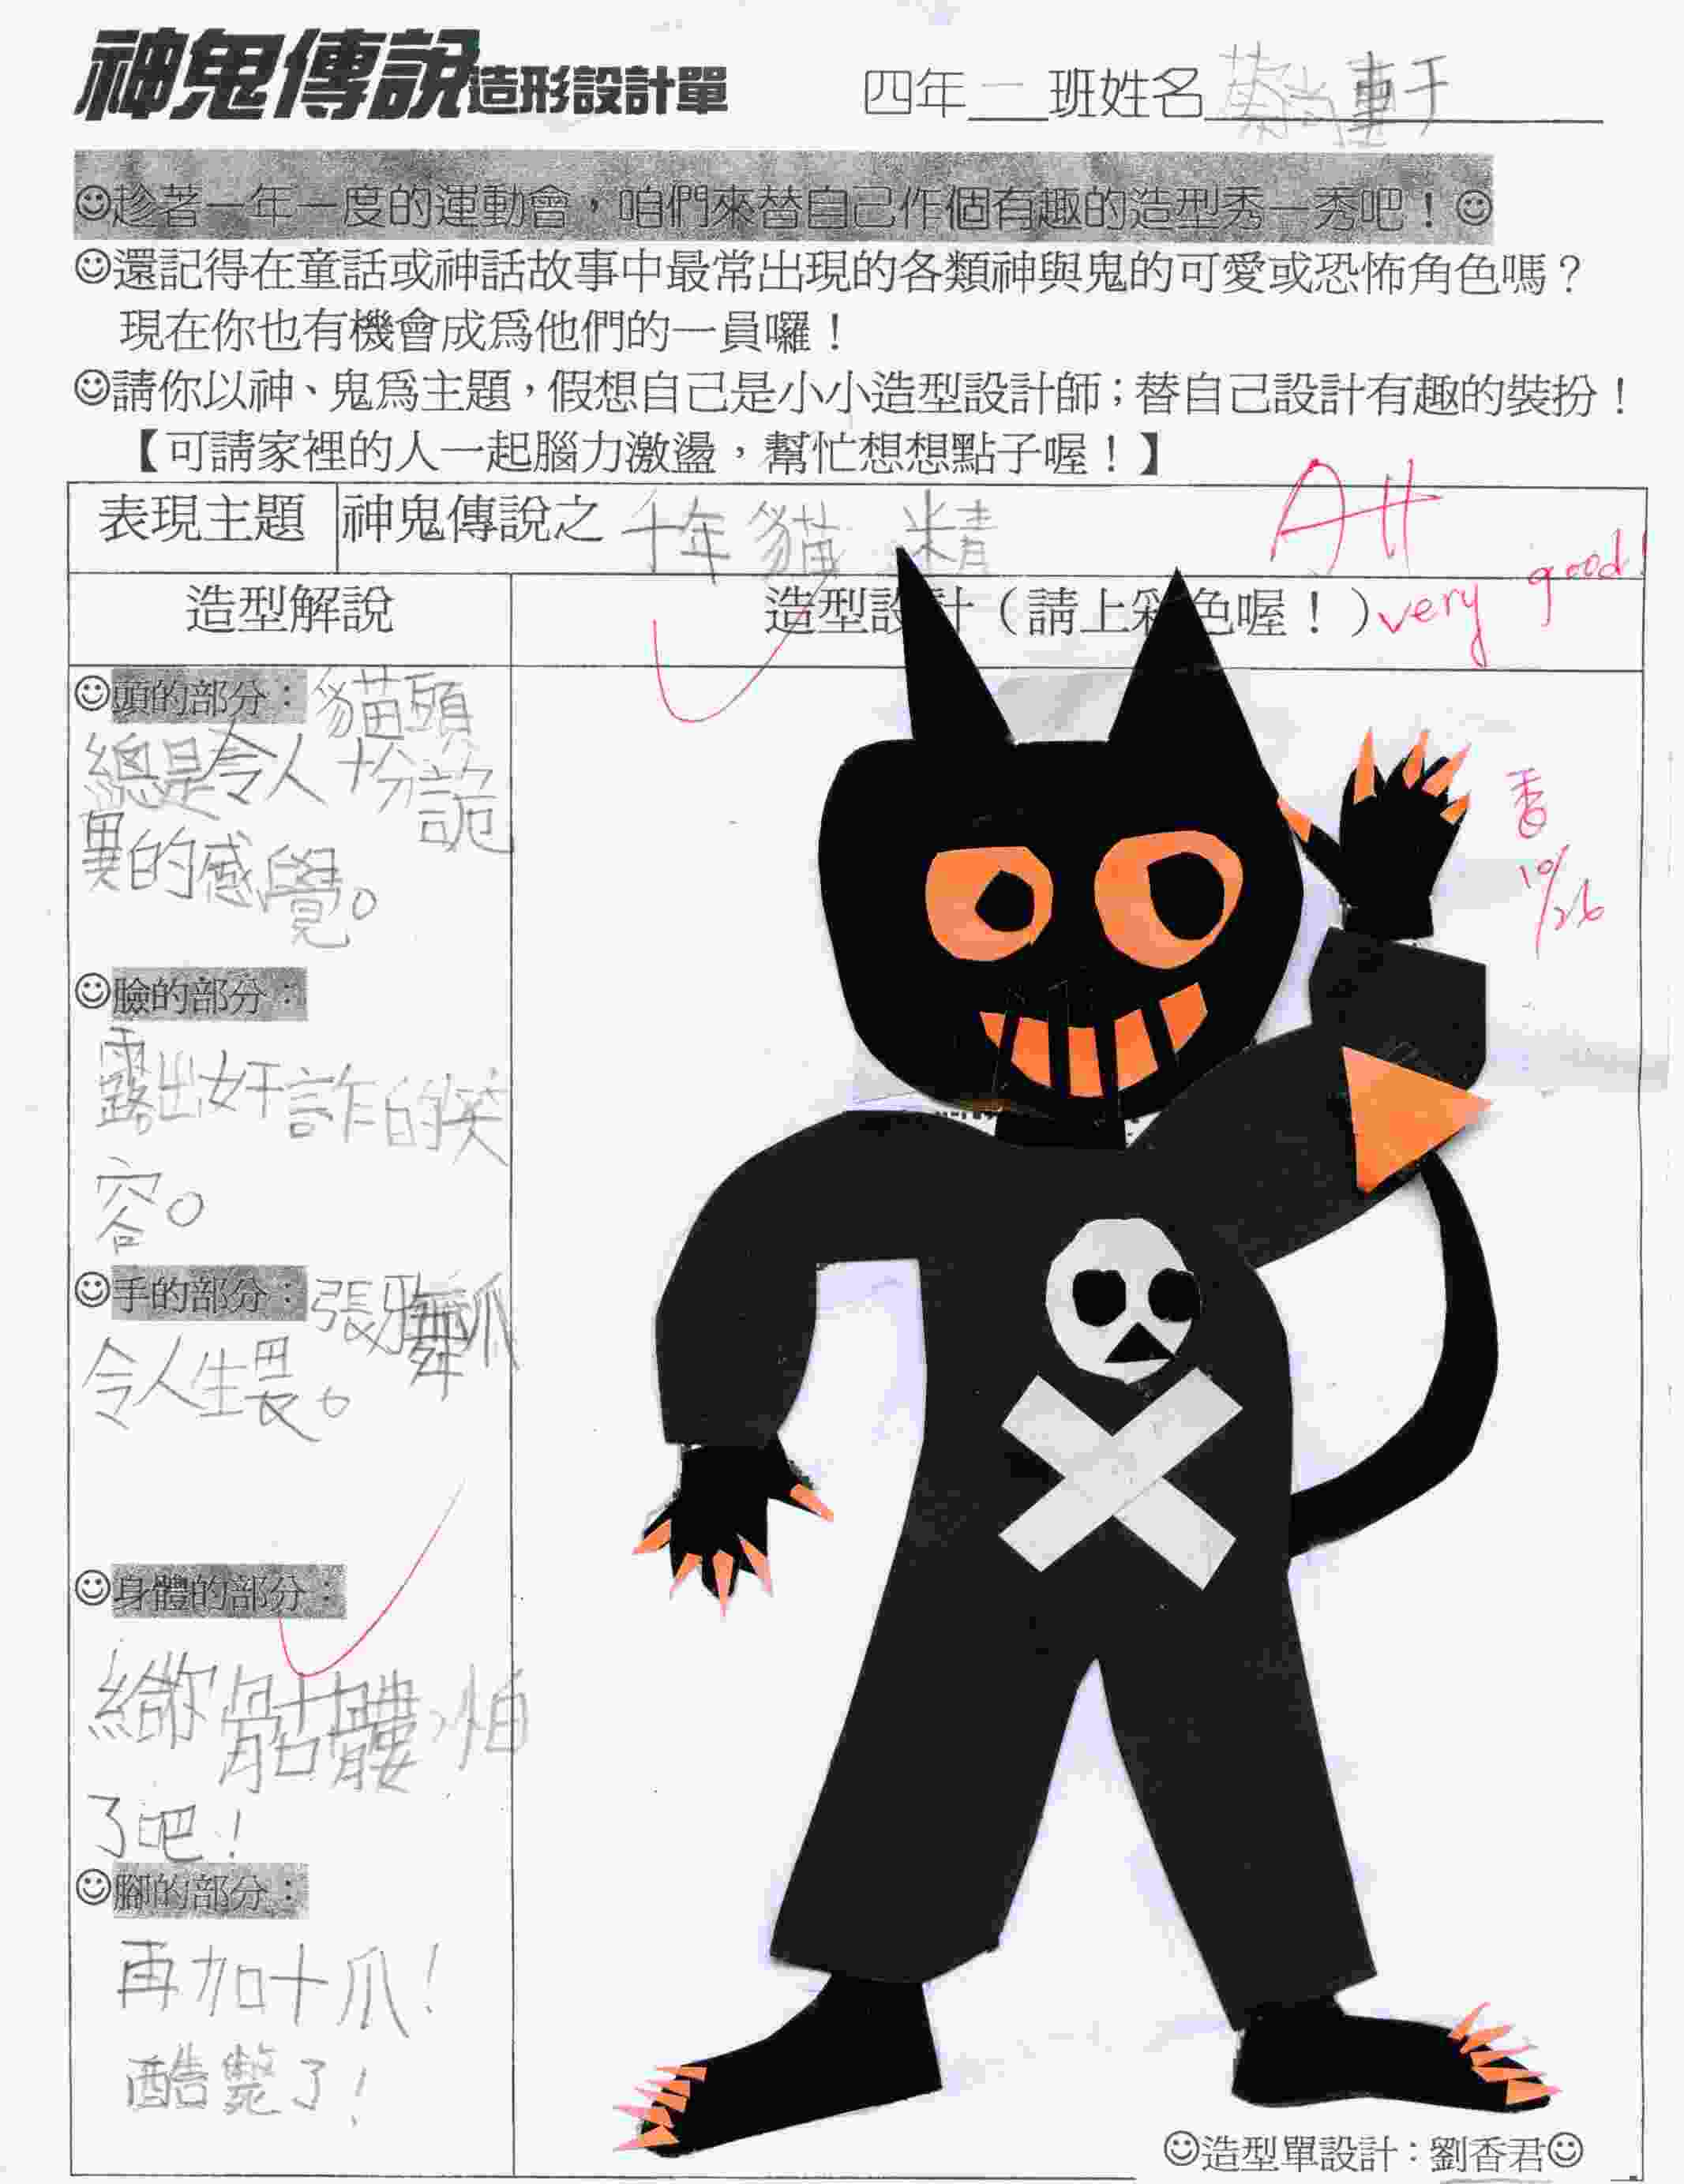 神鬼傳說造形設計單 四年一班姓名蔡尚軒
☺趁著一年一度的運動會，咱們來替自己作個有趣的造型秀一秀吧！☺
☺還記得在童話或神話故事中最常出現的各類神與鬼的可愛或恐怖角色嗎？
現在你也有機會成爲他們的一員囉！
☺請你以神、鬼爲主題，假想自己是小小造型設計師；替自己設計有趣的裝扮！
【可請家裡的人一起腦力激盪，幫忙想想點子喔！】
表現主題 神鬼傳說之 千年貓精
A++
very good!
造型解說 造型設計（請上彩色喔！）
☺頭的部分：貓頭
總是令人十分詭
異的感覺。
香
10/26
☺臉的部分：
露出奸詐的笑
容。
☺手的部分：張牙舞爪
令人生畏。
☺身體的部分：
給你骷髏，怕
了吧！
☺腳的部分：
再加十爪！
酷斃了！
☺造型單設計：劉香君☺